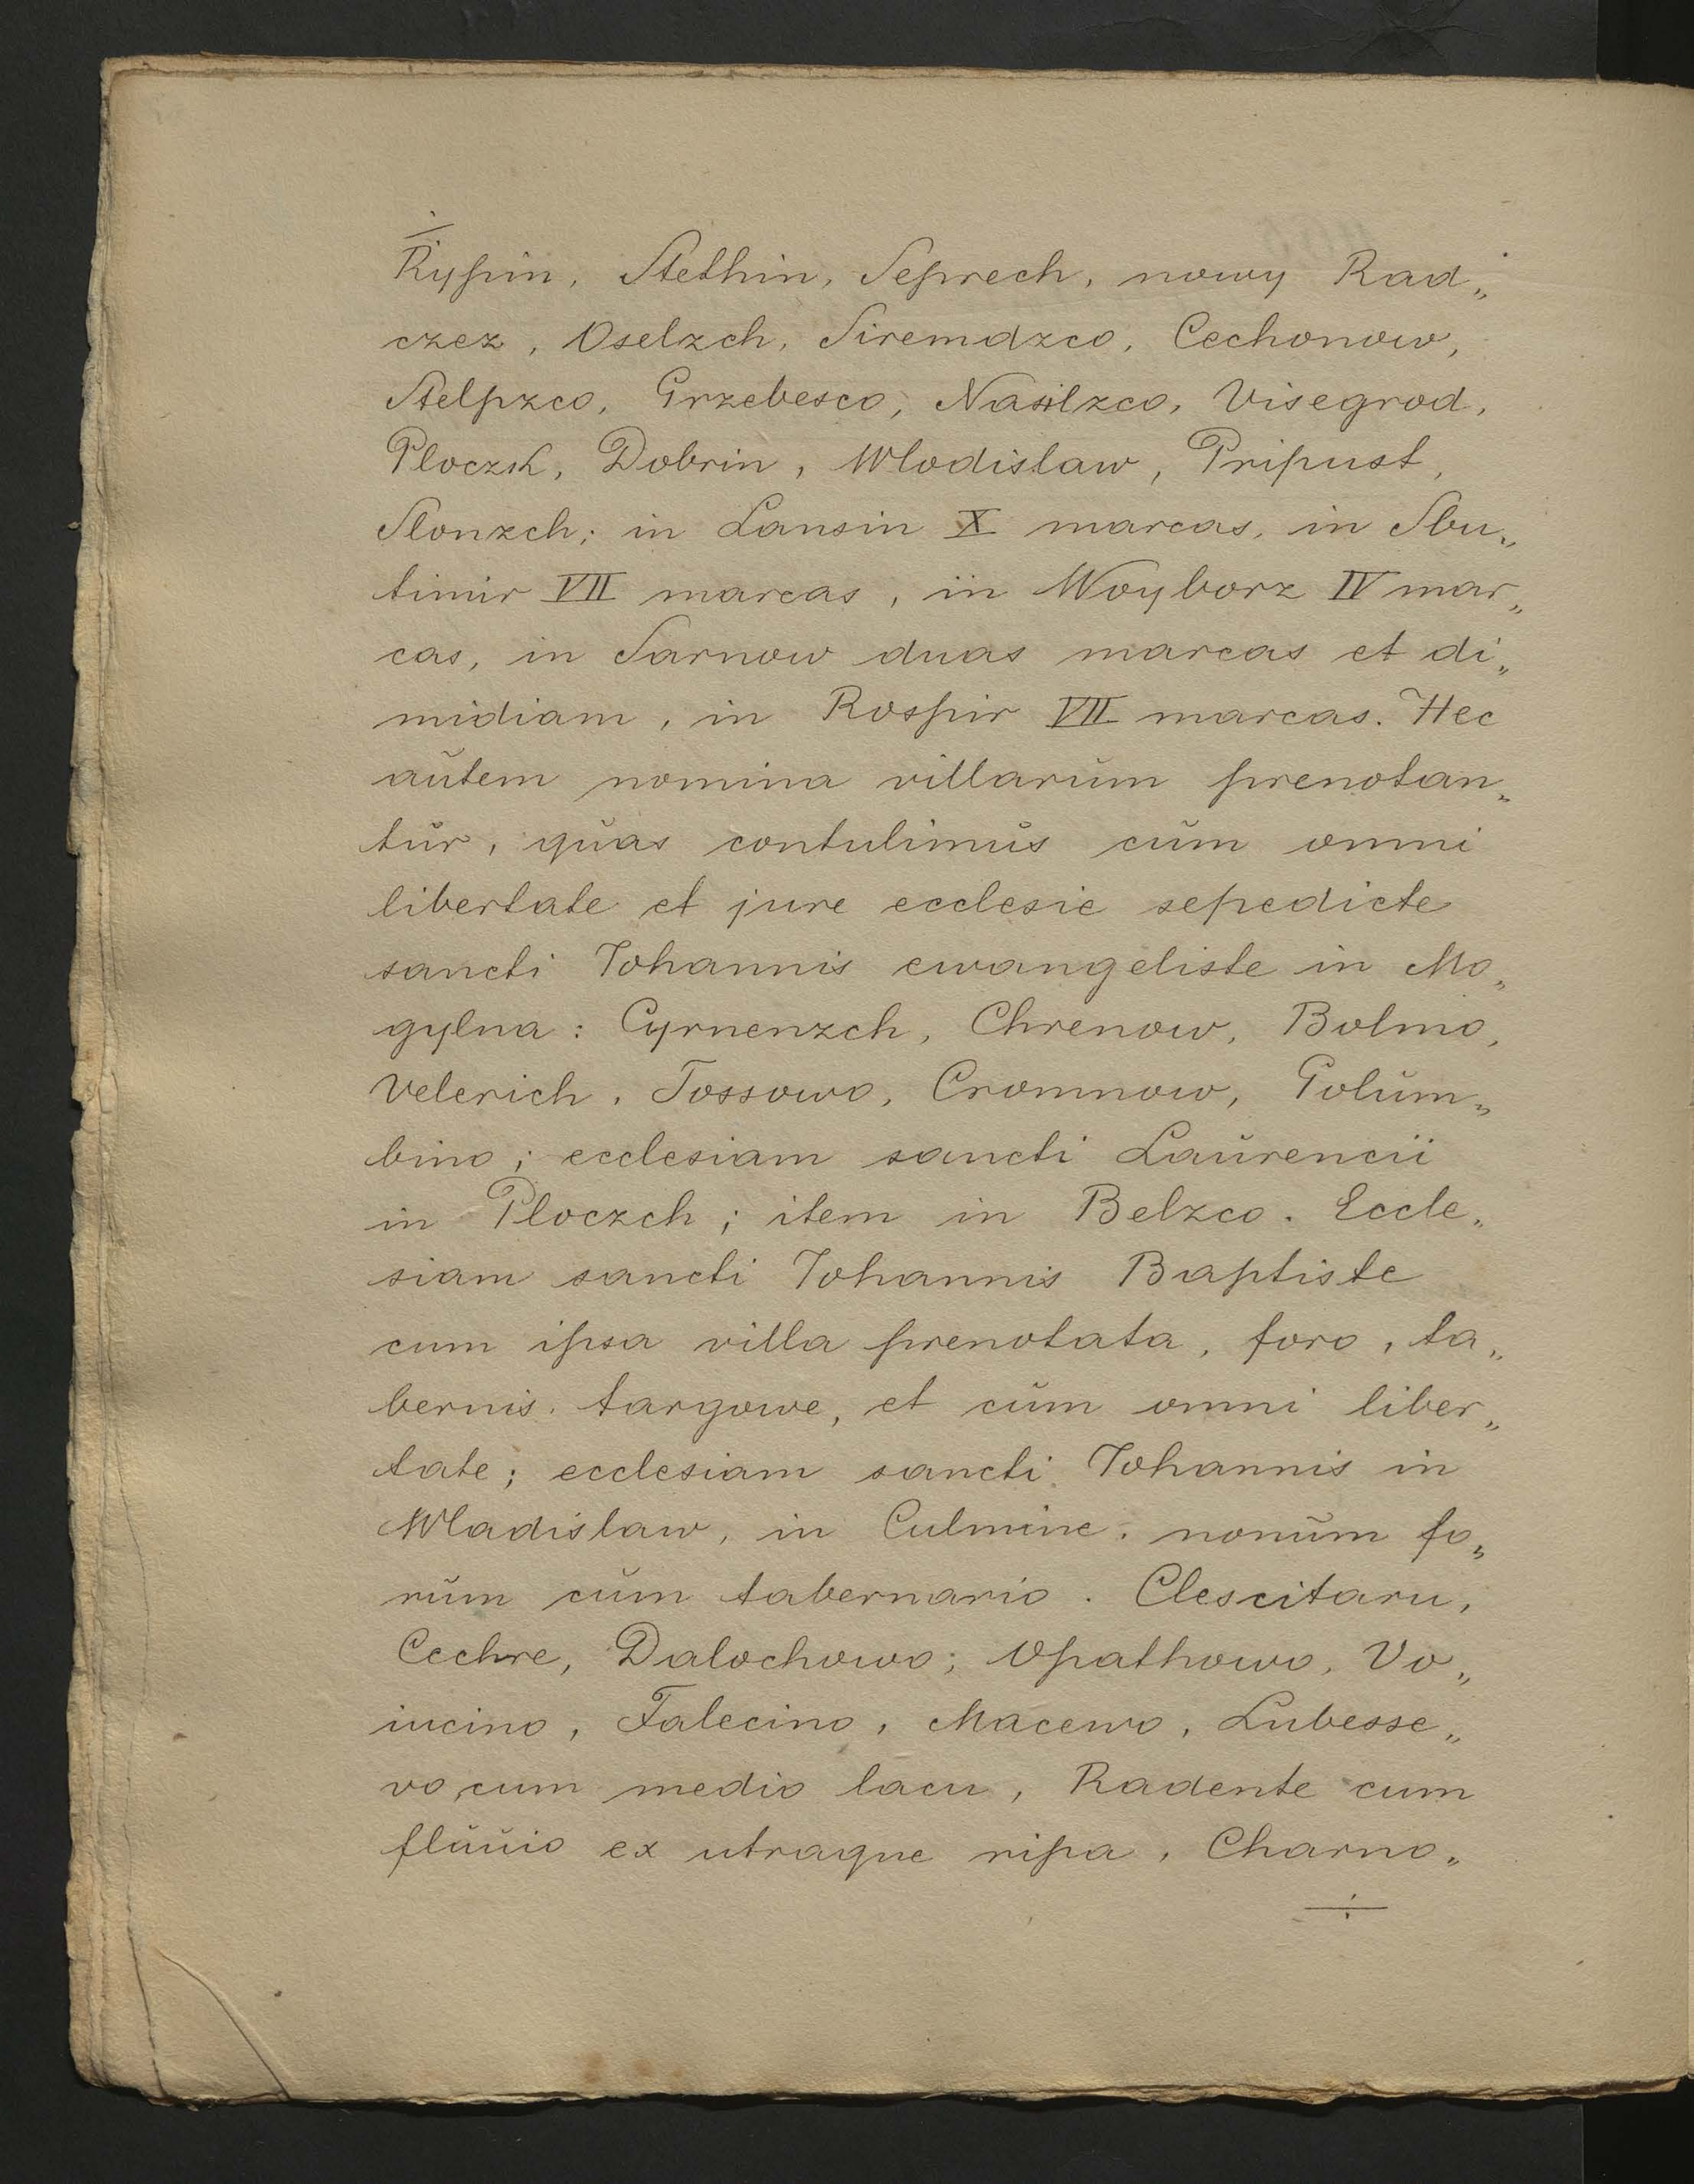 Rypin, Stethin, Seprech, nowy Rad„
czez, Oselzch, Siremdzco, Cechonow,
Stelpzco, Grzebesco, Nasilzco, Visegrod,
Ploczk, Dobrin, Wlodislaw, Pripust,
Slonzch; in Lansin X marcas, in Sbu„
timir VII marcas, in Woyborz IV mar„
cas, in Sarnow duas marcas et di„
midiam, in Rospir VII marcas. Hec
aŭtem nomina villarŭm prenotan„
tŭr, qŭas contulimŭs cŭm omni
libertate et jure ecclesie sepedicte
sancti Johannis ewangeliste in Mo„
gylna: Cyrnenzch, Chrenow, Bolmo,
Velerich, Tossowo, Cromnow, Golŭm„
bino; ecclesiam sancti Laŭrencii
in Ploczch; item in Belzco. Eccle„
siam sancti Johannis Baptiste
cum ipsa villa prenotata, foro, ta„
bernis, targowe, et cŭm omni liber„
tate; ecclesiam sancti Johannis in
Wladislaw, in Culmine. nonŭm fo„
rŭm cŭm tabernario. Clescitaru,
Cechre, Dalochowo; Opathowo, Vo„
iucino, Falecino, Macewo, Lubesse„
vo, cum medio lacu, Radente cum
flŭŭio ex utraque ripa, Charno„